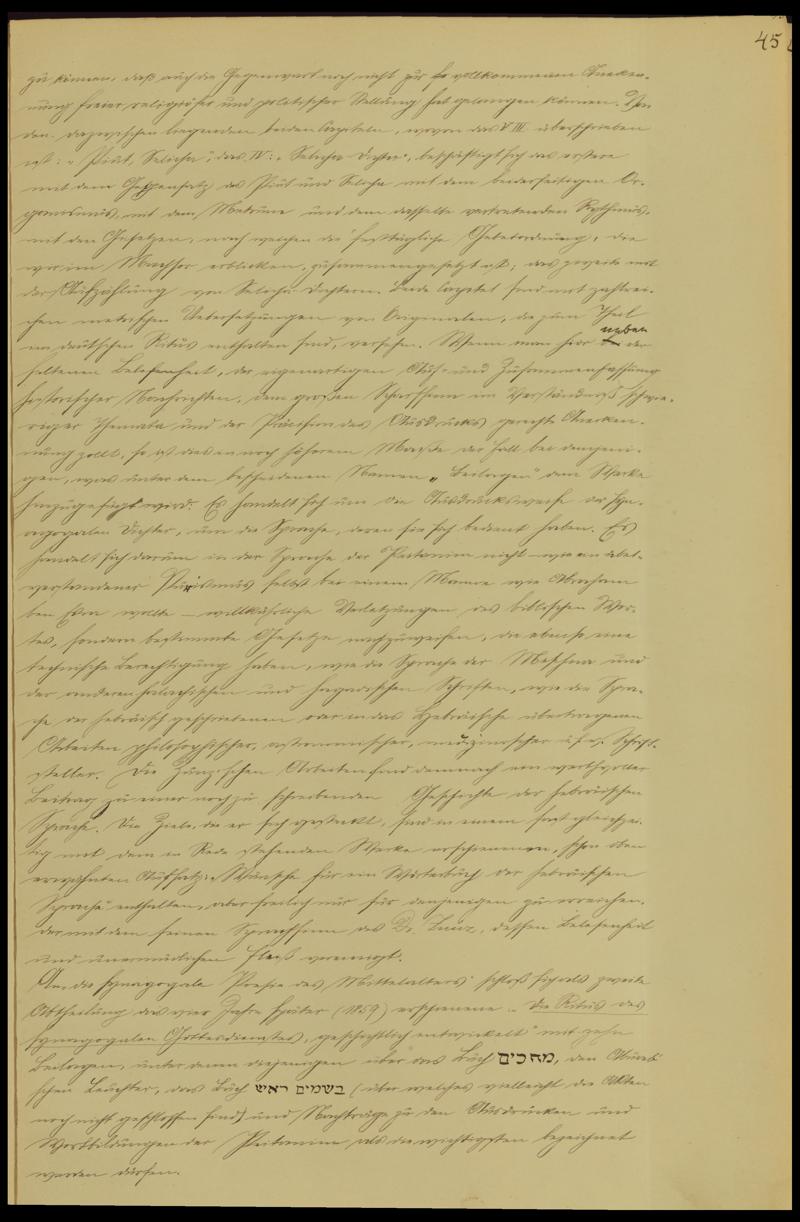 45
zu können, daß auch die Gegenwart noch nicht zur vollkommenen Anerken-
nung freier religiöser und politischer Stellung hat gelangen können. Von
den dazwischen liegenden beiden Capiteln, wovon das VIII überschrieben
ist: „Piut, Selicha", das IV: „Selicha Dichter", beschäftigt sich das erstere
mit dem Gegensatz des Piut und Selicha mit dem beiderseitigen Or-
ganismus, mit dem Metrum und dem dasselbe vertretenden Rythmus,
mit den Gesetzen, nach welchen die festtägliche Gebetordnung, die
wir im Machsor erblicken, zusammengesetzt ist; das zweite mit
der Aufzählung von Selicha-Dichtern. Beide Capitel sind mit zahlrei-
chen metrischen Uebersetzungen von Originalen, die zum Theil
im deutschen Ritus enthalten sind, versehen. Wenn man hier neben der
seltenen Belesenheit, der eigenartigen Auf- und Zusammenfassung
historischer Nachrichten, dem großen Scharfsinn im Verständniß schwie-
riger Themata und der Präcision des Ausdrucks gerechte Anerken-
nung zollt, so ist dies in noch höherem Maaße der Fall bei demjeni-
gen, was unter dem bescheidenen Namen „Beilagen" dem Werke
hinzugefügt wird. Es handelt sich um die Ausdrucksweise der syn-
agogalen Dichter, um die Sprache, deren sie sich bedient haben. Es
handelt sich darum in der Sprache der Peitanim nicht – wie ein übel-
verstandener Purismus selbst bei einem Manne wie Abraham
ben Esra wollte – willkührliche Verletzungen des biblischen Wor-
tes, sondern bestimmte Gesetze nachzuweisen, die ebenso eine
technische Berechtigung haben, wie die Sprache der Mischna und
der anderen halachischen und hagadischen Schriften, wie die Spra-
che der hebräisch geschriebenen oder in das Hebräische übertragenen
Arbeiten philosophischer, astronomischer, medizinischer u.s.w. Schrift-
steller. Die Zunzischen Arbeiten sind demnach ein werthvoller
Beitrag zu einer noch zu schreibenden Geschichte der hebräischen
Sprache. Die Ziele, die er sich gesteckt, sind in einem fast gleichzei-
tig mit dem in Rede stehenden Werke erschienenen, schon oben
erwähnten Aufsatz: „Wünsche für ein Wörterbuch der hebräischen
Sprache" enthalten, aber freilich nur für denjenigen zu erreichen,
der mit dem feinen Sprachsinn des Dr. Zunz, dessen Belesenheit
und unermüdlichen Fleiß vereinigt.
An die synagogale Poesie des Mittelalters schloß sich als zweite
Abtheilung das vier Jahre später (1859) erschienene „Die Ritus des
synagogalen Gottesdienstes, geschichtlich entwickelt" mit zehn
Beilagen, unter denen diejenigen über das Buch מחכים, den
schen Leuchter, das Buch בשמים ראש (über welches vielleicht die Akten
noch nicht geschlossen sind) und Nachträge zu den Ausdrücken und
Wortbildungen der Peitanim als die wichtigsten bezeichnet
werden dürfen.